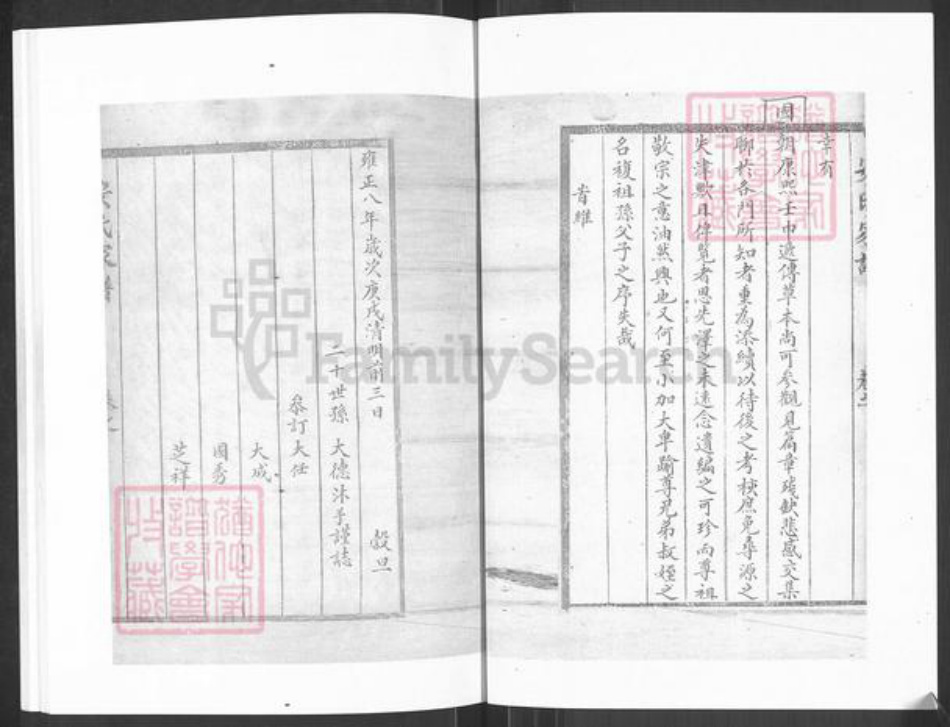 幸有
國朝康熙壬申遞傳草本尚可參觀見篇章殘缺悲感交集
聊於各門所知者重為添續以待後之考核庶免尋源之
失津歟且俾覽者思先澤之未遠念遺編之可珍而尊祖
敬宗之意油然興也又何至小加大卑踰尊兄弟叔姪之
名複祖孫父子之序失哉
旹維
雍正八年歲次庚戌清明前三日 穀旦
二十世孫 大德沐手謹誌
叅訂 大任
大成
國秀
芝祥
氏家譜
FamilySearch